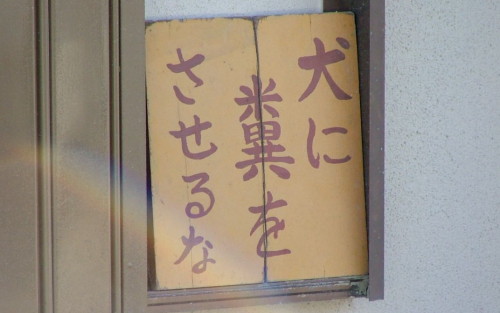 犬に
糞を
させるな